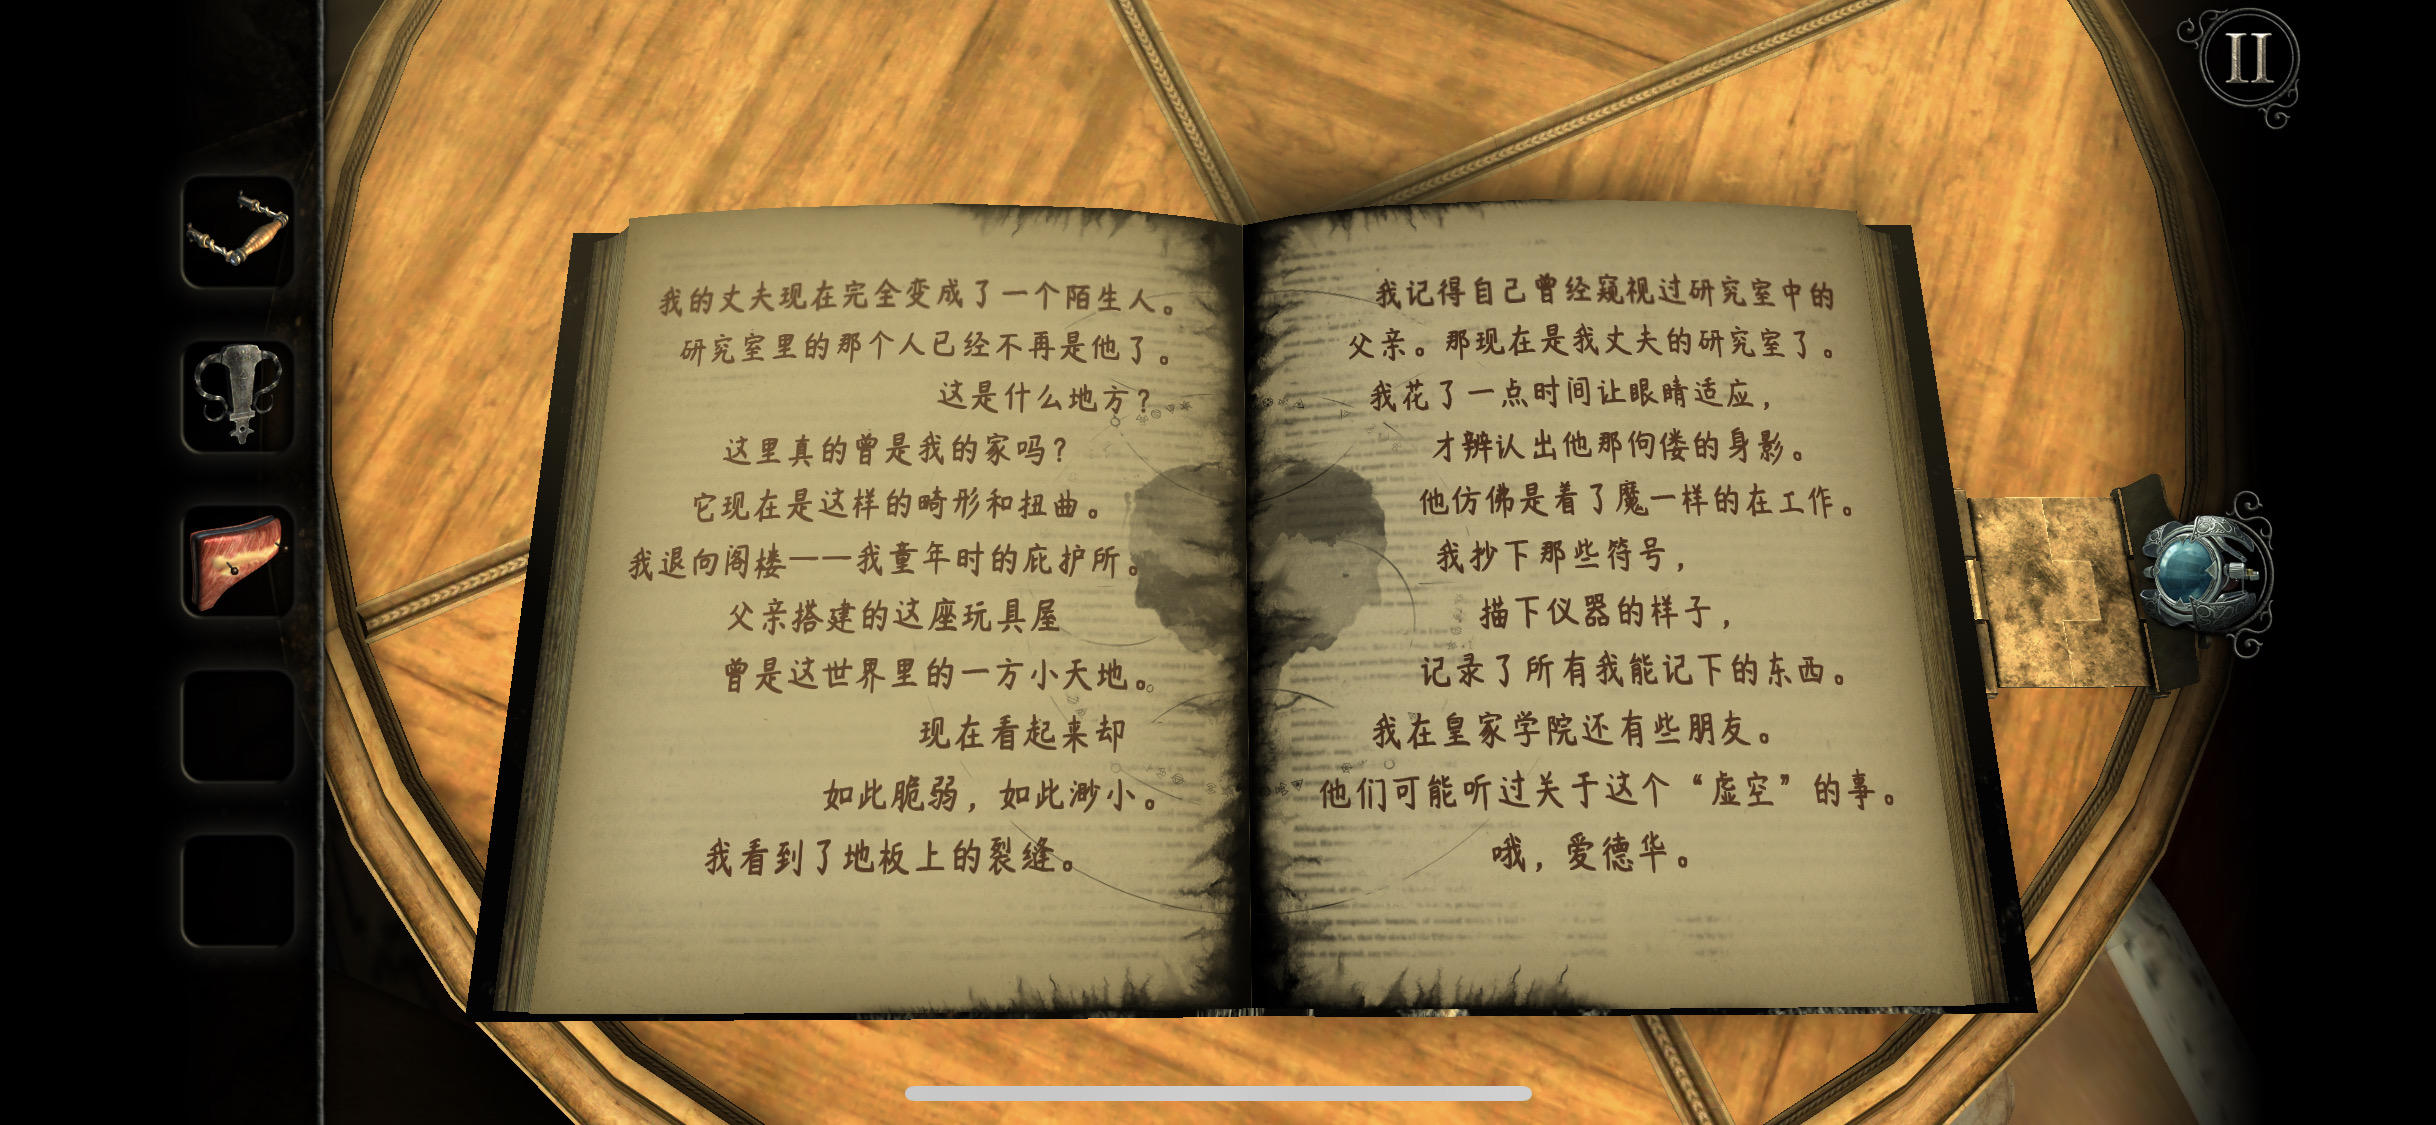 我的丈夫现在完全变成了一个陌生人。
研究室里的那个人已经不再是他了。
这是什么地方？
这里真的曾是我的家吗？
它现在是这样的畸形和扭曲。
我退向阁楼——我童年时的庇护所。
父亲搭建的这座玩具屋
曾是这世界里的一方小天地。
现在看起来却
如此脆弱，如此渺小。
我看到了地板上的裂缝。
我记得自己曾经窥视过研究室中的
父亲。那现在是我丈夫的研究室了。
我花了一点时间让眼睛适应，
才辨认出他那佝偻的身影。
他仿佛是着了魔一样的在工作。
我抄下那些符号，
描下仪器的样子，
记录了所有我能记下的东西。
我在皇家学院还有些朋友。
他们可能听过关于这个“虚空”的事。
哦，爱德华。
II